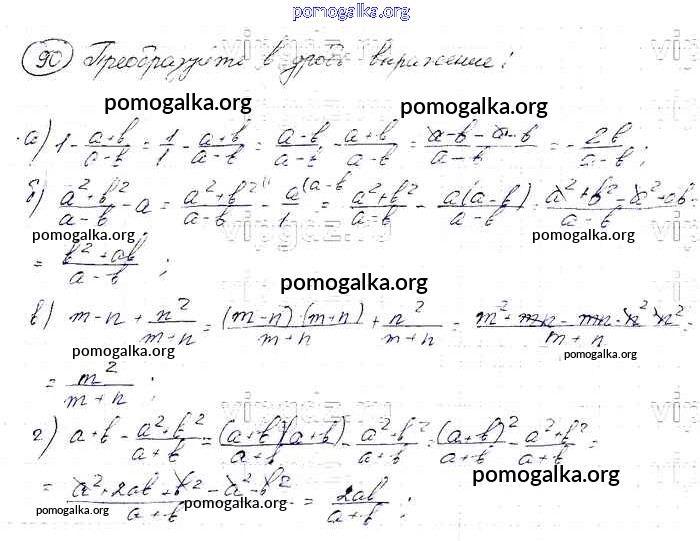 pomogalka.org
90) Преобразуйте в дробь выражение:
pomogalka.org pomogalka.org
а) 1 - (a+b)/(a-b) = 1/1 - (a+b)/(a-b) = (a-b)/(a-b) - (a+b)/(a-b) = (a-b-a-b)/(a-b) = - 2b/(a-b);
б) (a²+b²)/(a-b) - a = (a²+b²)/(a-b) - a/1 (a-b = (a²+b²)/(a-b) - a(a-b)/(a-b) = (a²+b²-a²+ab)/(a-b) =
pomogalka.org pomogalka.org pomogalka.org
= (b²+ab)/(a-b);
pomogalka.org
в) m-n + n²/(m+n) = (m-n)(m+n)/(m+n) + n²/(m+n) = (m²+mn-mn-n²+n²)/(m+n) =
pomogalka.org pomogalka.org
= m²/(m+n);
г) a+b - (a²+b²)/(a+b) = (a+b)(a+b)/(a+b) - (a²+b²)/(a+b) = (a+b)²/(a+b) - (a²+b²)/(a+b) =
pomogalka.org
= (a²+2ab+b²-a²-b²)/(a+b) = 2ab/(a+b);
pomogalka.org pomogalka.org